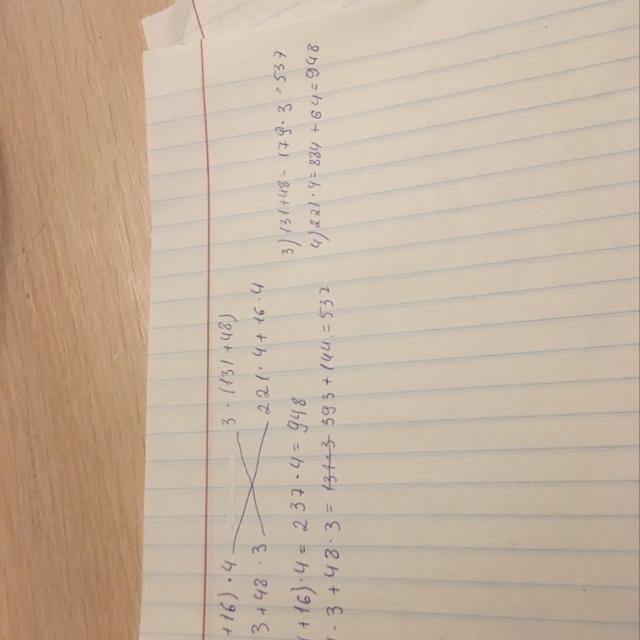 +16)·4 3·(131+48)
3+48·3 221·4+16·4
+16)·4=237·4=948
·3+48·3=131·3 393+144=537
3)131+48=179·3=537
4)221·4=884+64=948